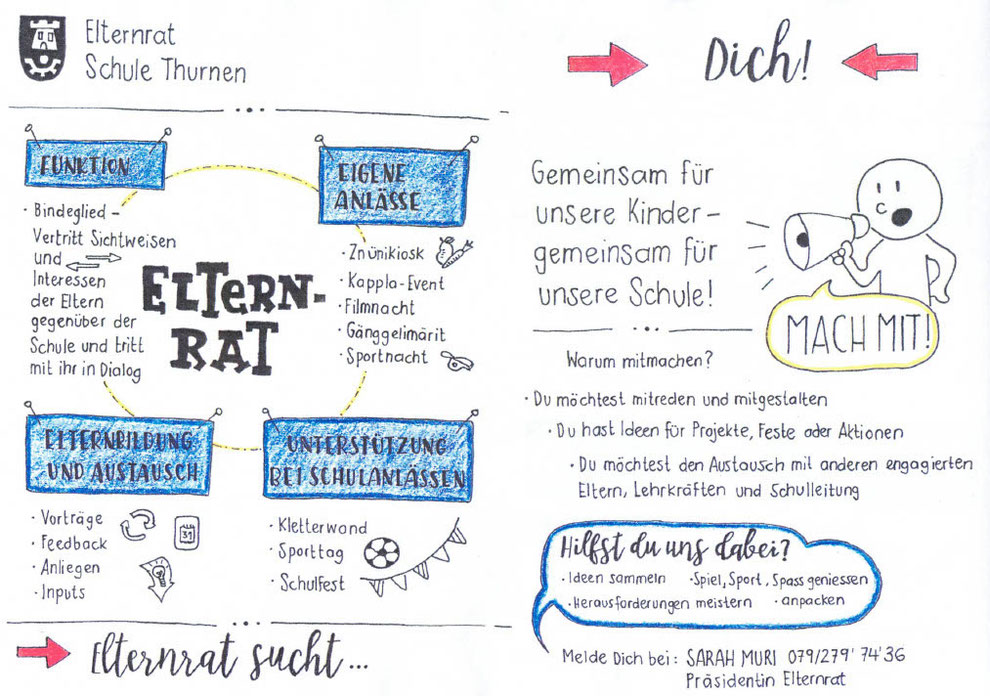 Elternrat
Schule Thurnen
FUNKTION
· Bindeglied –
Vertritt Sichtweisen
und
Interessen
der Eltern
gegenüber der
Schule und tritt
mit ihr in Dialog
EIGENE
ANLÄSSE
· Znünikiosk
· Kappla-Event
· Filmnacht
· Gänggelimärit
· Sportnacht
ELTERN-
RAT
ELTERNBILDUNG
UND AUSTAUSCH
· Vorträge
· Feedback
· Anliegen
· Inputs
31
UNTERSTÜTZUNG
BEI SCHULANLÄSSEN
· Kletterwand
· Sporttag
· Schulfest
Elternrat sucht...
Dich!
Gemeinsam für
unsere Kinder –
gemeinsam für
unsere Schule!
MACH MIT!
Warum mitmachen?
· Du möchtest mitreden und mitgestalten
· Du hast Ideen für Projekte, Feste oder Aktionen
· Du möchtest den Austausch mit anderen engagierten
Eltern, Lehrkräften und Schulleitung
Hilfst du uns dabei?
· Ideen sammeln · Spiel, Sport, Spass geniessen
· Herausforderungen meistern · anpacken
Melde Dich bei: SARAH MURI 079/279'74'36
Präsidentin Elternrat